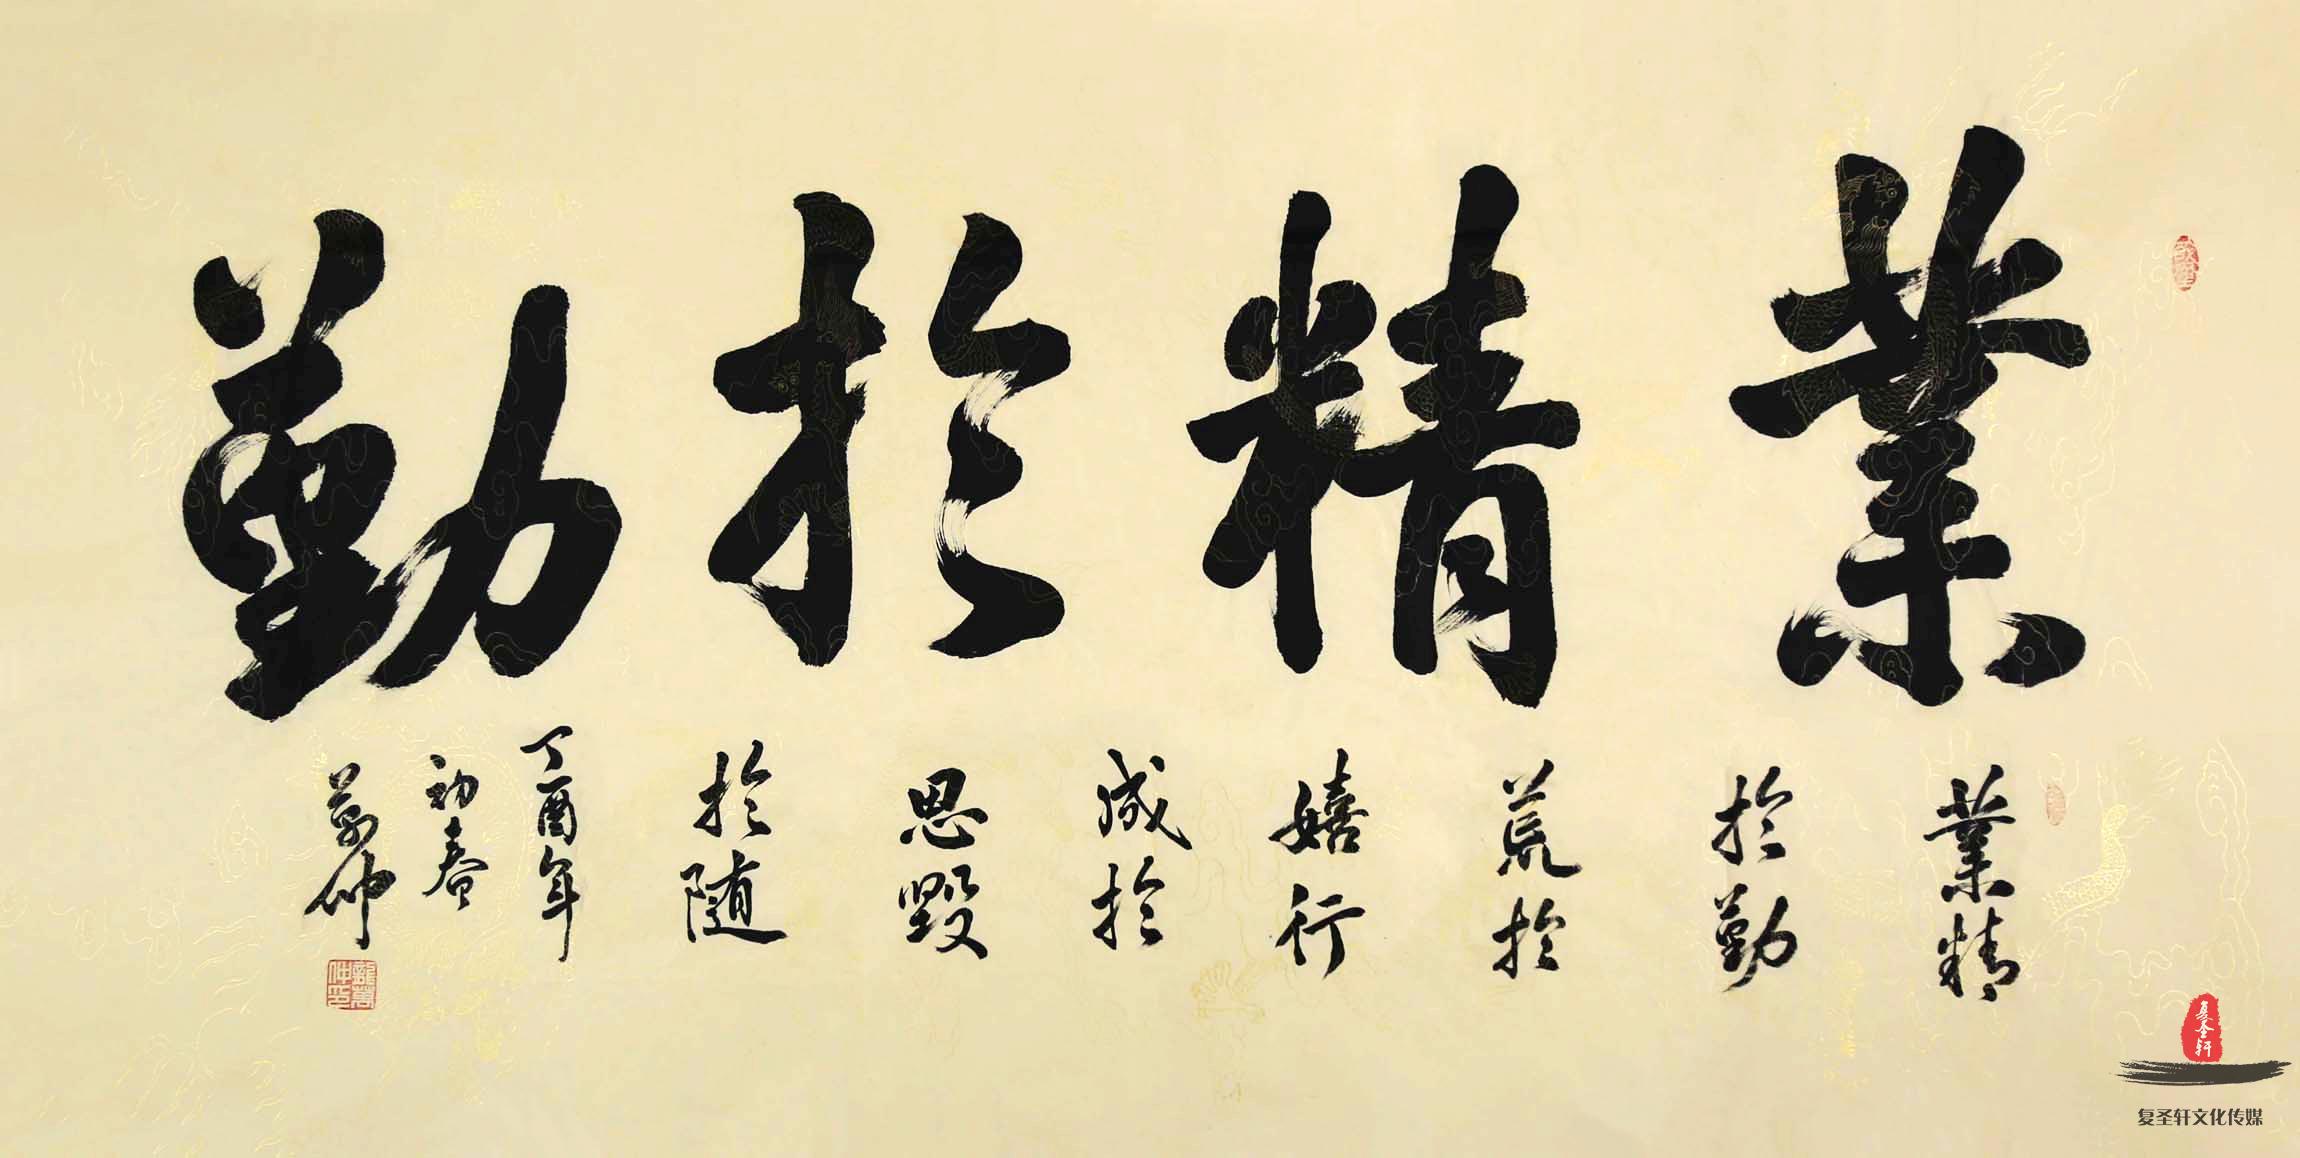 業精於勤
業精
於勤
荒於
嬉行
成於
思毀
於随
丁酉年
初春
萬仲
龍萬仲印
复圣轩
复圣轩文化传媒